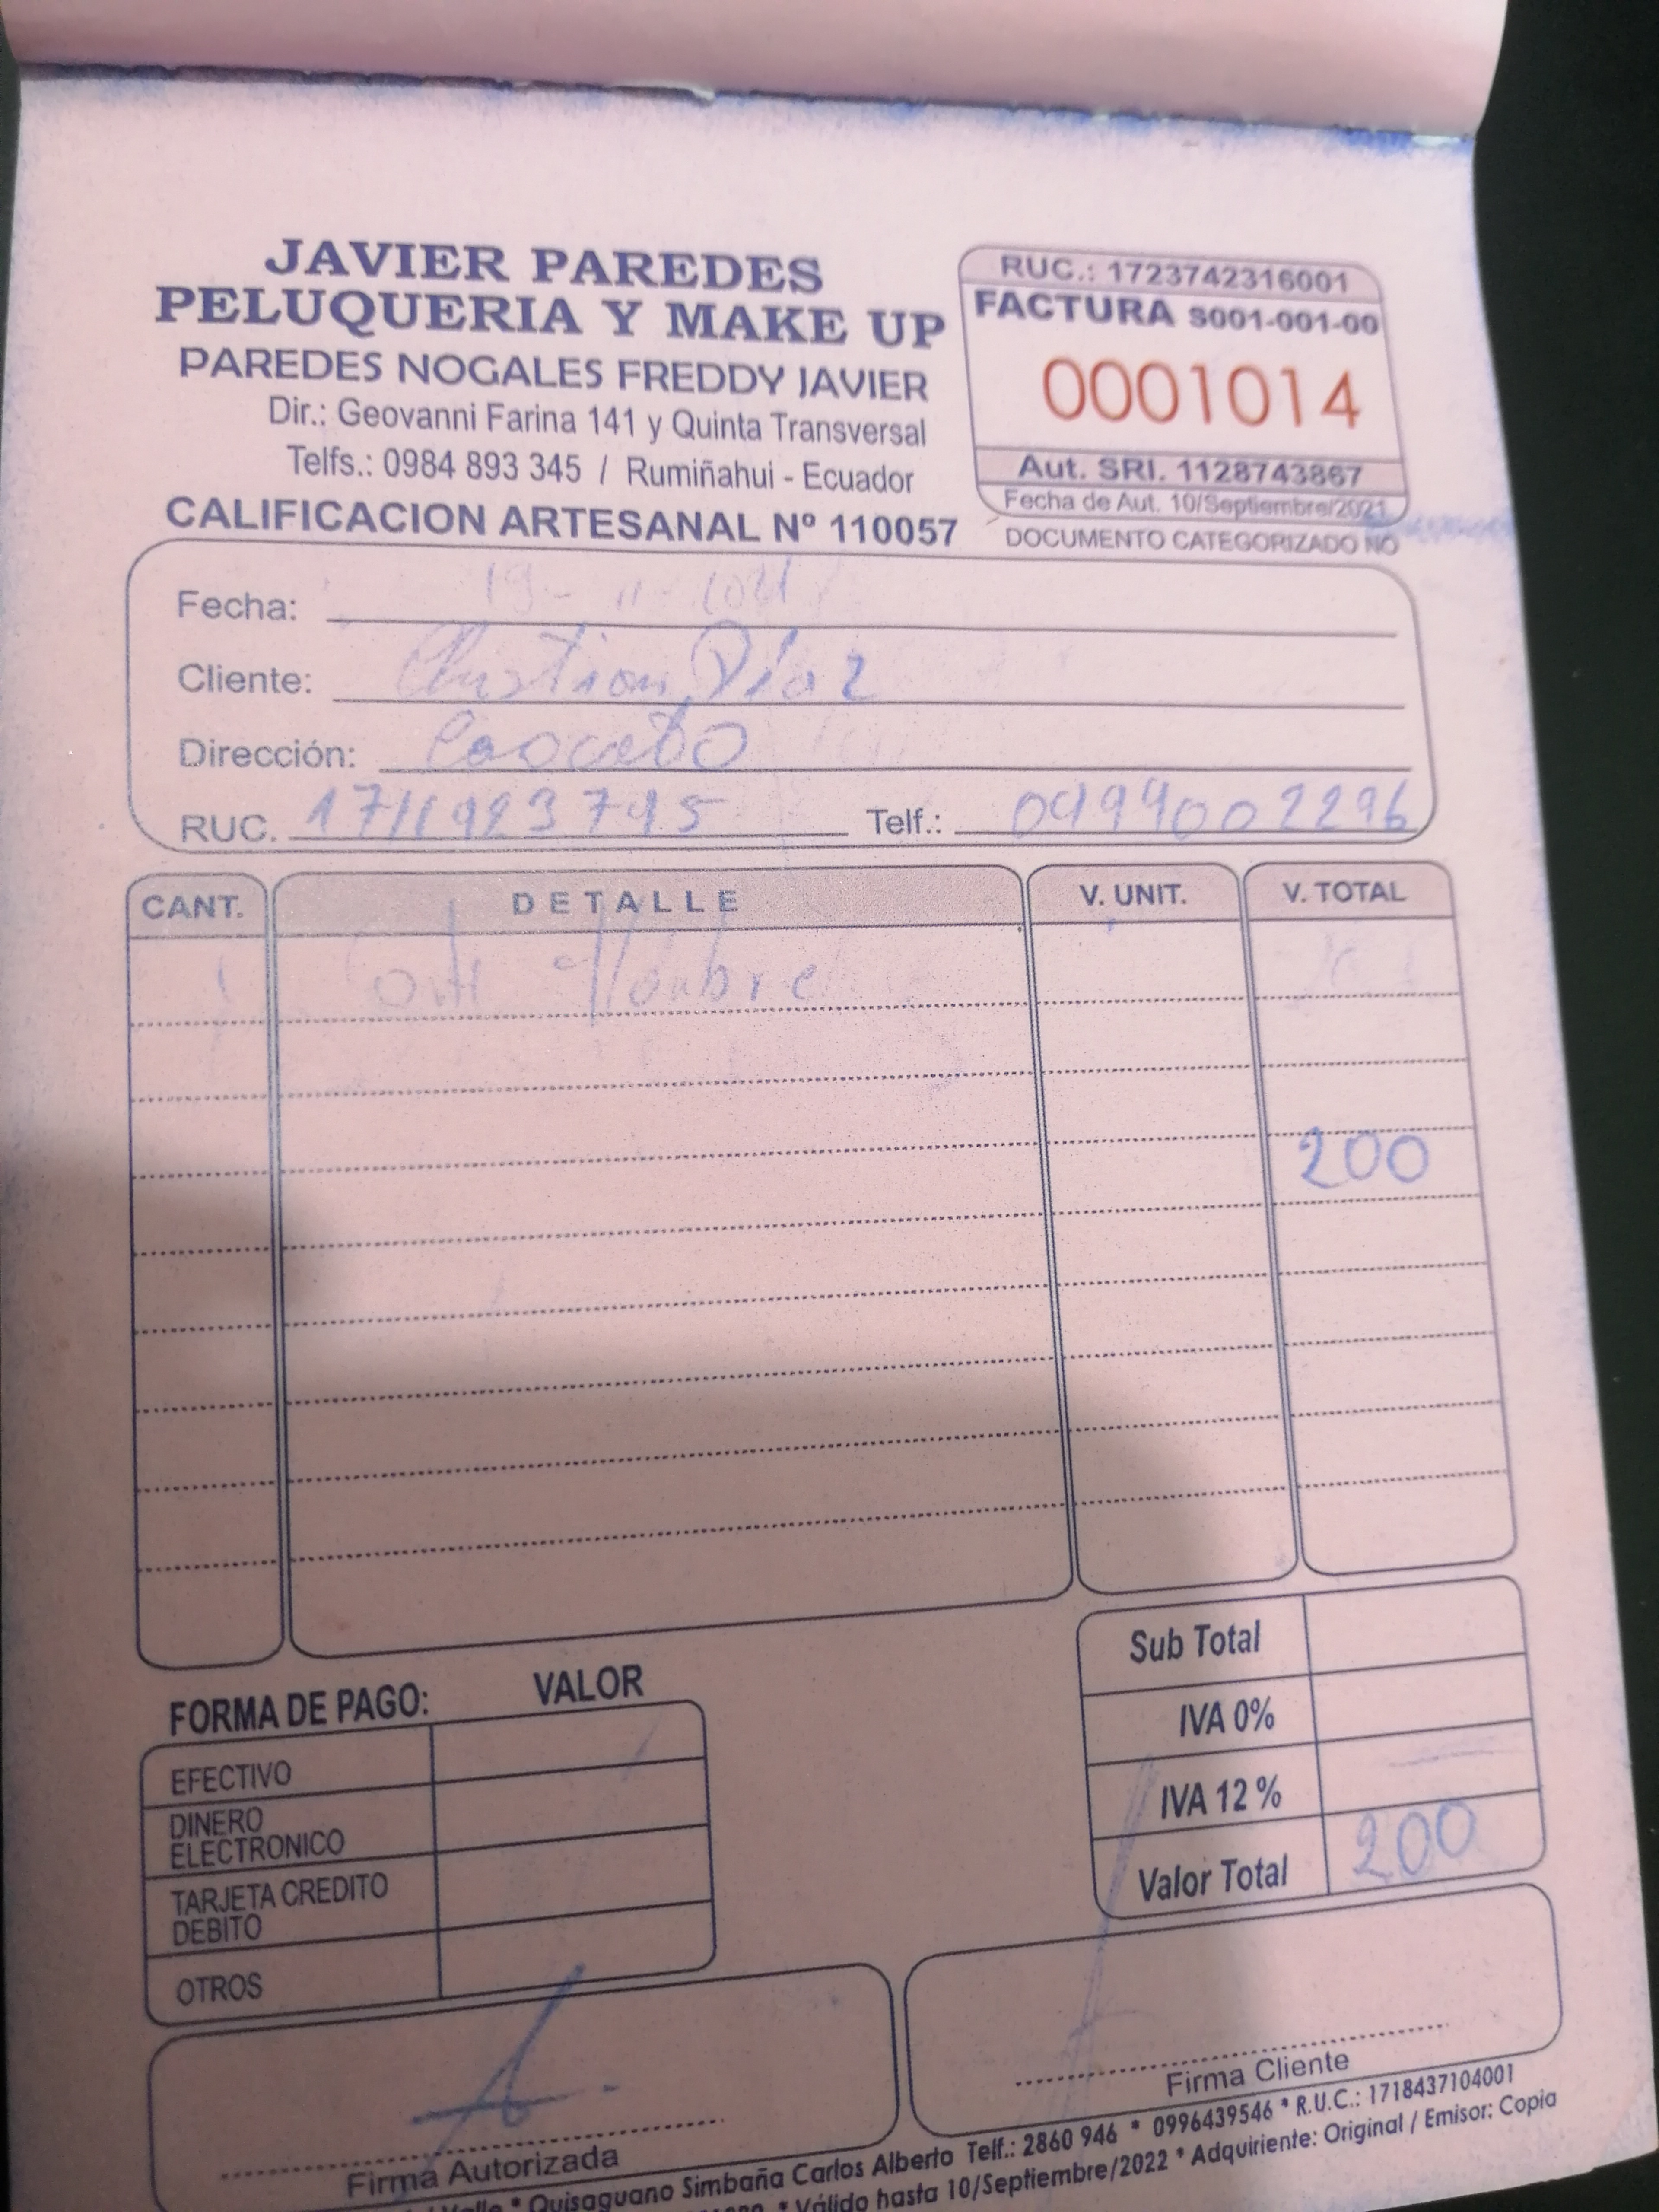 JAVIER PAREDES
PELUQUERIA Y MAKE UP
PAREDES NOGALES FREDDY JAVIER
Dir.: Geovanni Farina 141 y Quinta Transversal
Telfs.: 0984 893 345 / Rumiñahui - Ecuador
CALIFICACION ARTESANAL Nº 110057
RUC.: 1723742316001
FACTURA S001-001-00
0001014
Aut. SRI. 1128743867
Fecha de Aut. 10/Septiembre/2021
DOCUMENTO CATEGORIZADO NO
Fecha: 19-11-2021
Cliente: Christian Díaz
Dirección:
RUC. Telf.:
CANT. DETALLE V. UNIT. V. TOTAL
1 Corte Hombre
200
Sub Total
IVA 0%
IVA 12%
Valor Total 200
FORMA DE PAGO: VALOR
EFECTIVO
DINERO
ELECTRONICO
TARJETA CREDITO
DEBITO
OTROS
Firma Autorizada
Firma Cliente
Valle * Quisaguano Simbaña Carlos Alberto Telf.: 2860 946 * 0996439546 * R.U.C.: 1718437104001
* Válido hasta 10/Septiembre/2022 * Adquiriente: Original / Emisor: Copia